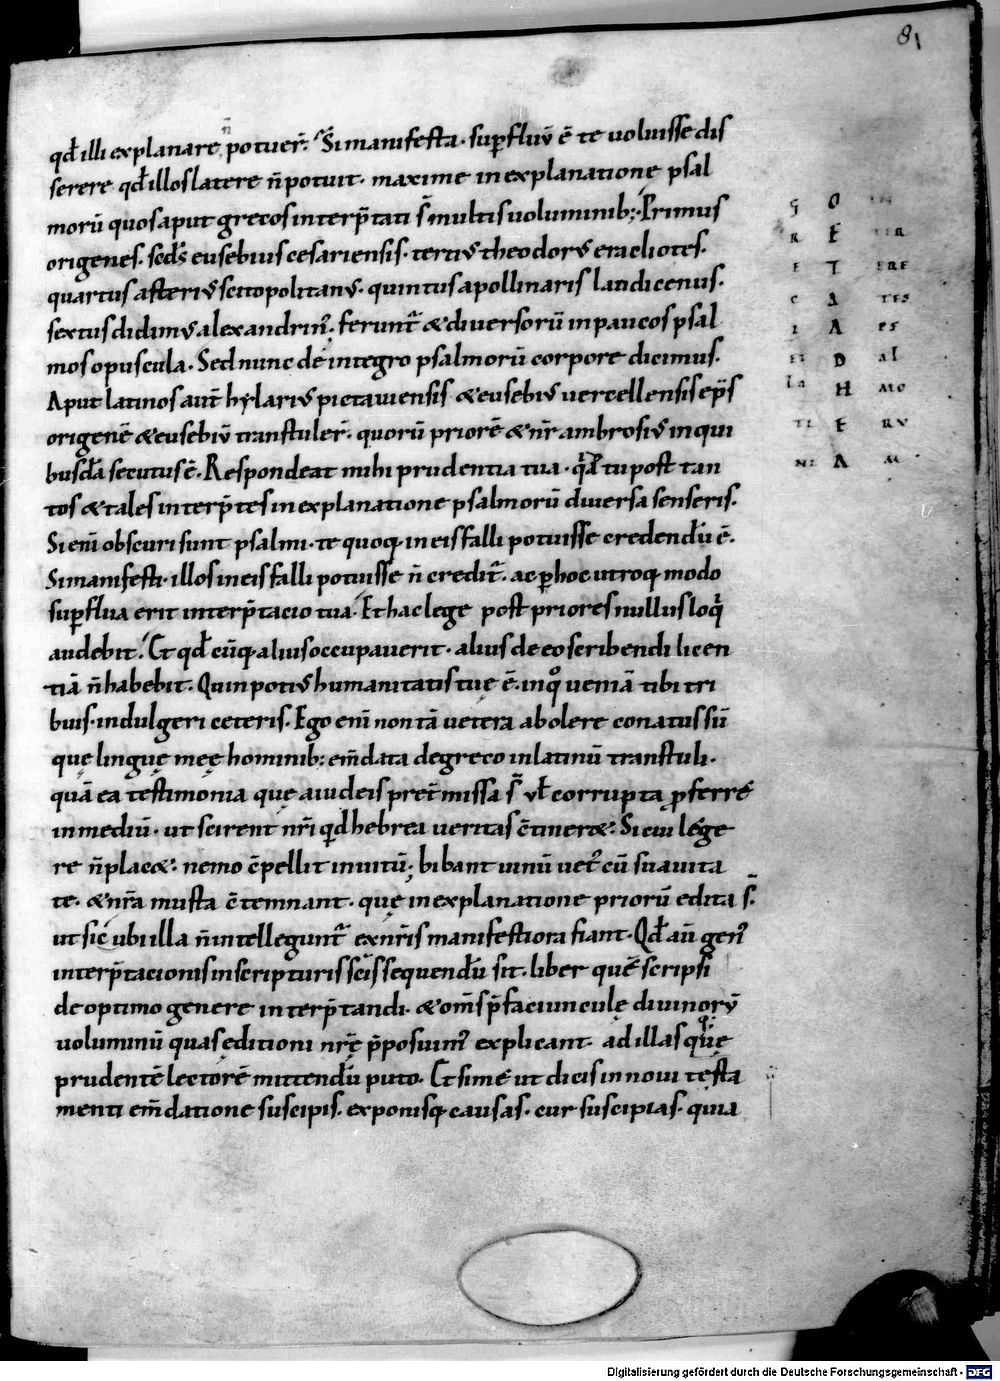 81
qđ illi explanare potuer̃. Si manifesta. supfluũ ẽ te uoluisse dis
serere qđ illos latere ñ potuit. maxime in explanatione psal
morũ quos aput grecos interp̃tati s̃ multis uoluminib; Primus
origenes. scds eusebius cesariensis. tertiꝰ theodorꝰ eracliotes.
quartus asteriꝰ scitopolitanꝰ. quintus apollinaris laudicenus.
sextus didimꝰ alexandrinꝰ. ferunt̃ & diuersorũ in paucos psal
mos opuscula. Sed nunc de integro psalmorũ corpore dicimus.
Aput latinos aut̃ hylariꝰ pictauiensis & eusebiꝰ uercellensis ep̃s
origenẽ & eusebiũ transtuler̃. quorũ priorẽ & nr̃ ambrosiꝰ in qui
busdã secutus ẽ. Respondeat mihi prudentia tua. qͣre tu post tan
tos & tales interp̃tes in explanatione psalmorũ diuersa senseris.
Si eni obscuri sunt psalmi. te quoq; in eis falli potuisse credendũ ẽ.
Si manifesti. illos in eis falli potuisse ñ credit̃. ac p hoc utroq; modo
supflua erit interp̃tacio tua. Et hac lege post priores nullus loqͥ
audebit. Et qđ cũq; alius occupauerit. alius de eo scribendi licen
tiã ñ habebit. Quin potiꝰ humanitatis tuę ẽ. in qͦ ueniã tibi tri
buis. indulgeri ceteris. Ego eni non tã uetera abolere conatus sũ
que linguę meę hominib; em̃data de greco in latinũ transtuli.
quã ea testimonia quę a iudeis pret̃missa s̃ uł corrupta pferre
in mediũ. ut scirent nr̃i qd hebrea ueritas c̃tiner&. Si cui lege
re ñ plac&. nemo c̃pellit inuitũ. bibant uinũ uetꝰ cũ suauita
te. & nr̃a musta c̃temnant. quę in explanatione priorũ edita s̃.
ut sic ubi illa ñ intellegunt̃ ex nr̃is manifestiora fiant. Qđ aũ genꝰ
interp̃tacionis in scripturis sc̃is sequendũ sit. liber quẽ scripsi
de optimo genere interp̃tandi. & om̃s p̃faciunculę diuinorũ
uoluminũ quas editioni nr̃ę p̃posuimꝰ explicant. ad illas qͣue
prudentẽ lectorẽ mittendũ puto. Et si me ut dicis in noui testa
menti em̃datione suscipis. exponisq; causas. cur suscipias. quia
O
E
T
A
A
D
H
E
A
Digitalisierung gefördert durch die Deutsche Forschungsgemeinschaft - DFG